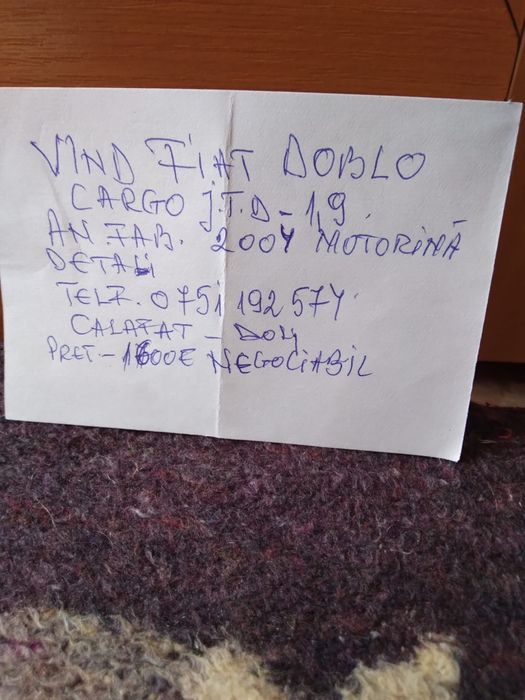 VIND FIAT DOBLO
CARGO J.T.D - 1,9
AN FAB. 2004 MOTORINĂ
DETALI
TELF. 0751 192 574
CALAFAT - DOLJ
PRET - 1600E NEGOCIABIL